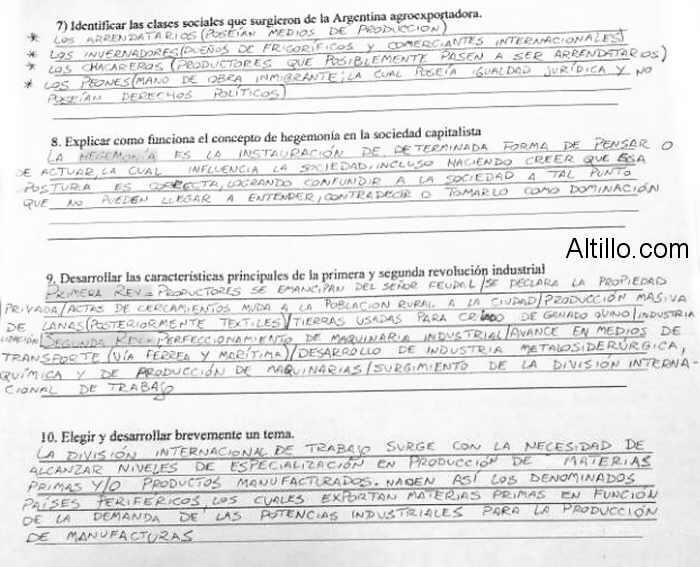 7) Identificar las clases sociales que surgieron de la Argentina agroexportadora.
* LOS ARRENDATARIOS (POSEÍAN MEDIOS DE PRODUCCION)
* LOS INVERNADORES (DUEÑOS DE FRIGORÍFICOS Y COMERCIANTES INTERNACIONALES)
* LOS CHACAREROS (PRODUCTORES QUE POSIBLEMENTE PASEN A SER ARRENDATARIOS)
* LOS PEONES (MANO DE OBRA INMIGRANTE; LA CUAL POSEÍA IGUALDAD JURÍDICA Y NO
POSEÍAN DERECHOS POLÍTICOS)
8. Explicar como funciona el concepto de hegemonía en la sociedad capitalista
LA HEGEMONÍA ES LA INSTAURACIÓN DE DETERMINADA FORMA DE PENSAR O
DE ACTUAR, LA CUAL INFLUENCIA LA SOCIEDAD, INCLUSO HACIENDO CREER QUE ESA
POSTURA ES CORRECTA, LOGRANDO CONFUNDIR A LA SOCIEDAD A TAL PUNTO
QUE NO PUEDEN LLEGAR A ENTENDER, CONTRADECIR O TOMARLO COMO DOMINACIÓN
Altillo.com
9. Desarrollar las características principales de la primera y segunda revolución industrial
PRIMERA REV = PRODUCTORES SE EMANCIPAN DEL SEÑOR FEUDAL / SE DECLARA LA PROPIEDAD
PRIVADA / ACTAS DE CERCAMIENTOS MUDA A LA POBLACION RURAL A LA CIUDAD / PRODUCCIÓN MASIVA
DE LANAS (POSTERIORMENTE TEXTILES) / TIERRAS USADAS PARA CRIADO DE GANADO OVINO / INDUSTRIA
SEGUNDA REV = PERFECCIONAMIENTO DE MAQUINARIA INDUSTRIAL / AVANCE EN MEDIOS DE
TRANSPORTE (VÍA FERREA Y MARÍTIMA) / DESARROLLO DE INDUSTRIA METALOSIDERÚRGICA,
QUÍMICA Y DE PRODUCCIÓN DE MAQUINARIAS / SURGIMIENTO DE LA DIVISIÓN INTERNA-
CIONAL DE TRABAJO
10. Elegir y desarrollar brevemente un tema.
LA DIVISIÓN INTERNACIONAL DE TRABAJO SURGE CON LA NECESIDAD DE
ALCANZAR NIVELES DE ESPECIALIZACIÓN EN PRODUCCIÓN DE MATERIAS
PRIMAS Y/O PRODUCTOS MANUFACTURADOS. NACEN ASÍ LOS DENOMINADOS
PAÍSES PERIFÉRICOS, LOS CUALES EXPORTAN MATERIAS PRIMAS EN FUNCIÓN
DE LA DEMANDA DE LAS POTENCIAS INDUSTRIALES PARA LA PRODUCCIÓN
DE MANUFACTURAS